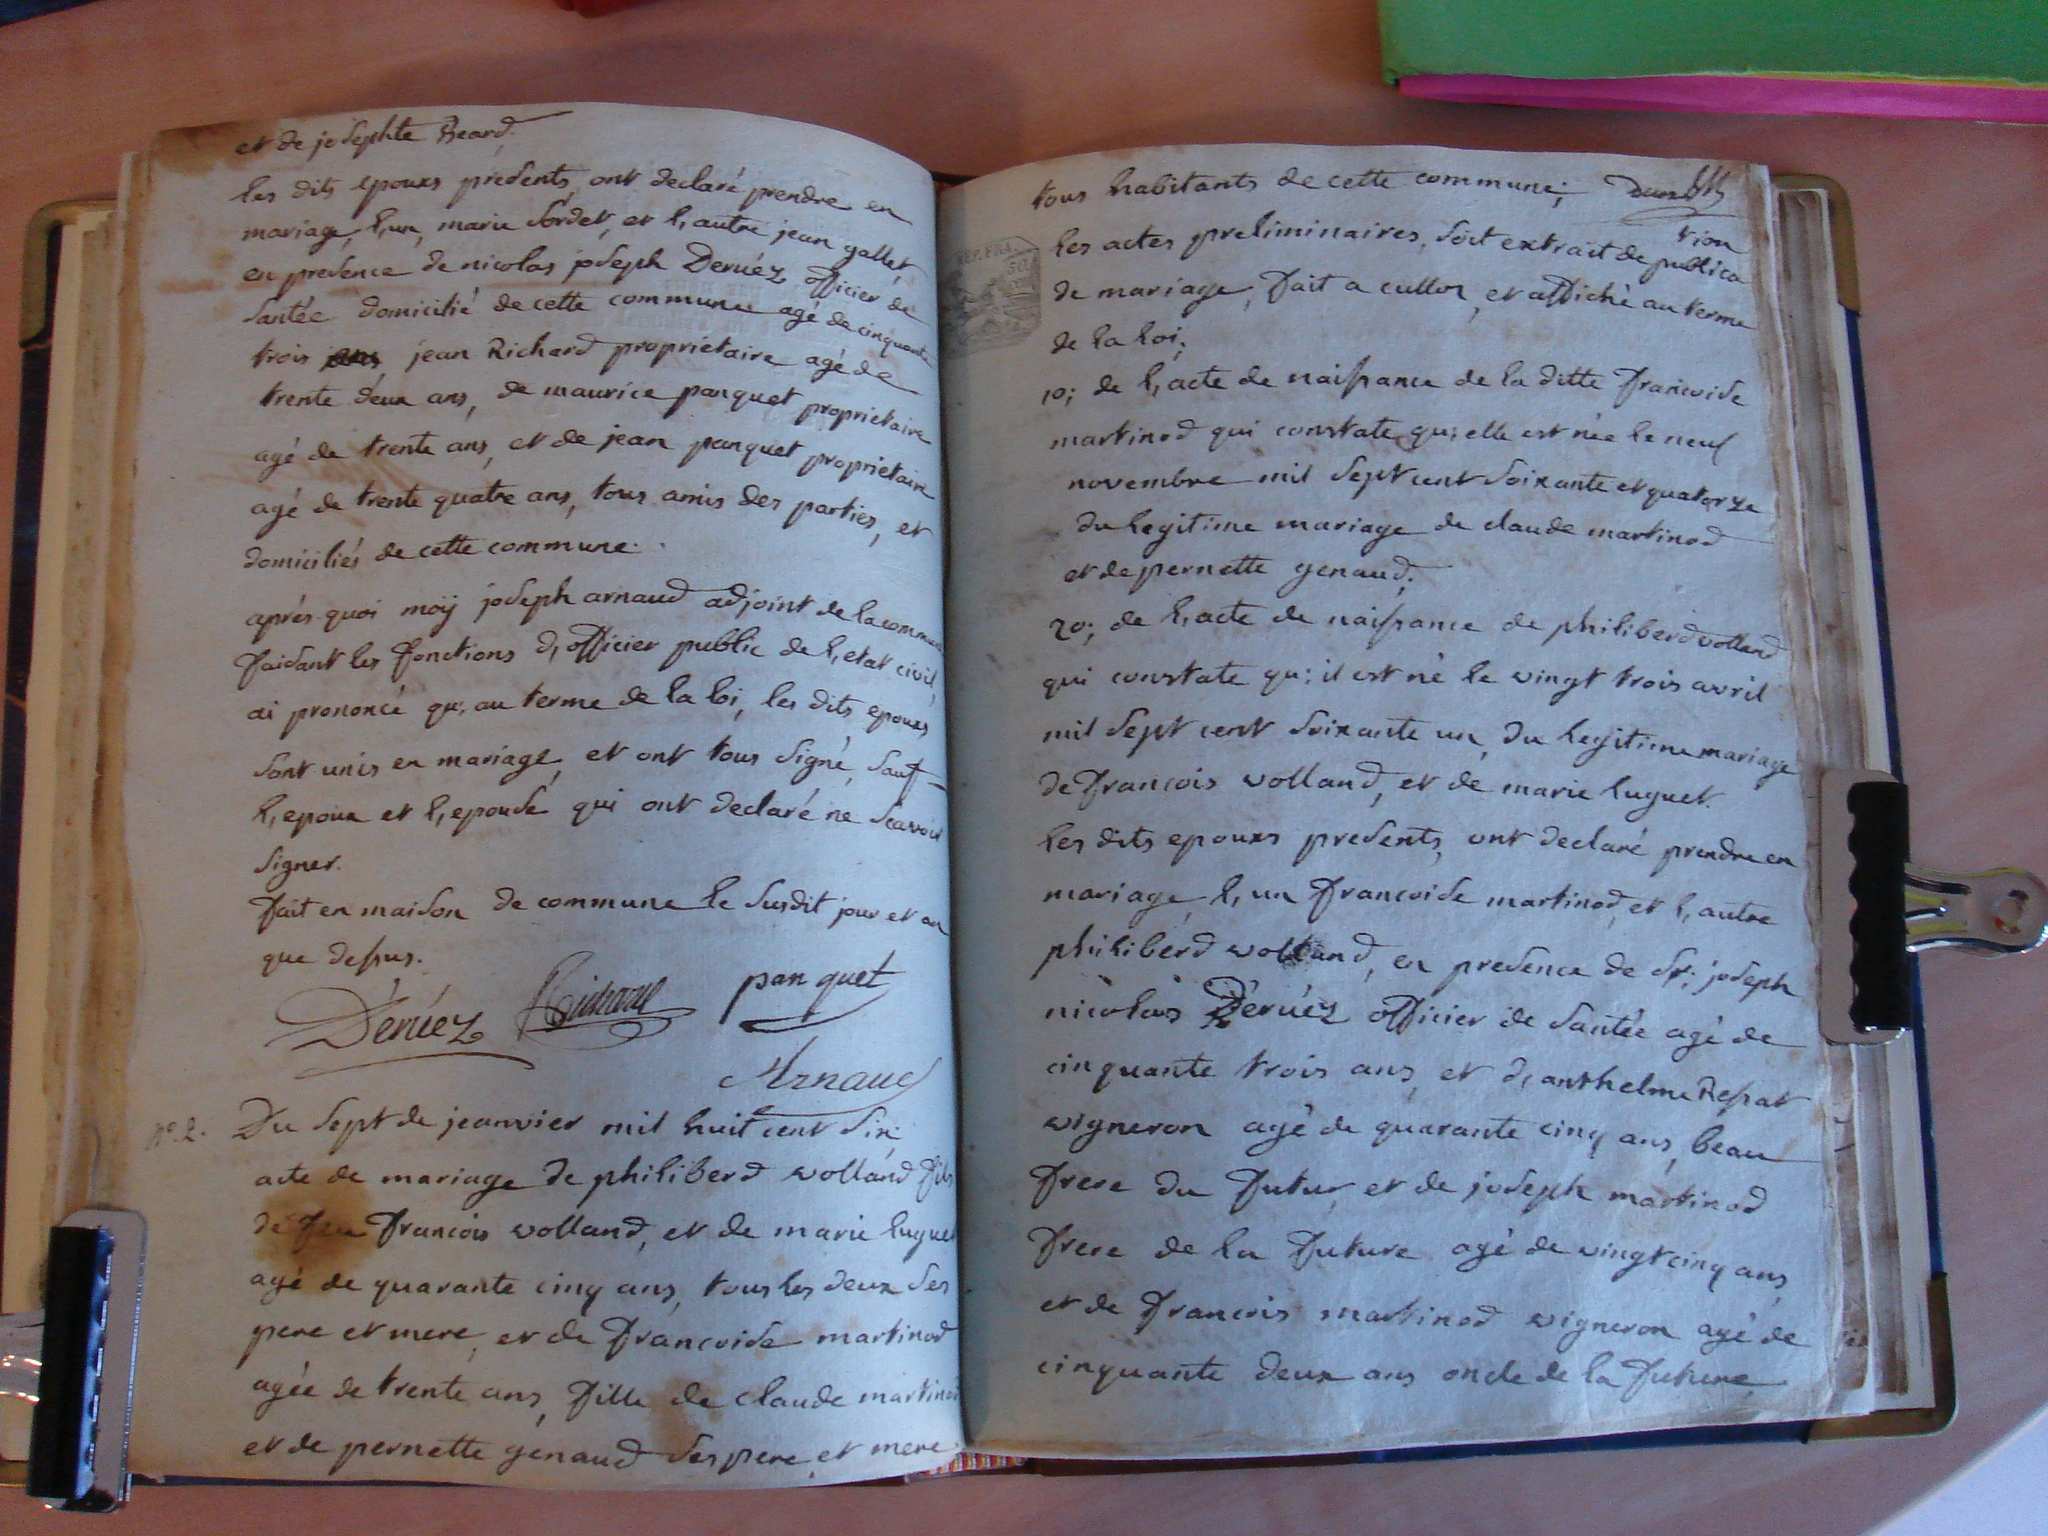 et de josephte Beard.
les dits epouxs presents, ont declaré prendre en
mariage, l,un, marie Sordet, et l,autre jean gallet,
en presence de nicolas joseph Deruéz officier de
Santée domicilié de cette commune agé de cinquante
trois ans, jean Richard propriétaire agé de
trente deux ans, de maurice panquet propriétaire
agé de trente ans, et de jean panquet propriétaire
agé de trente quatre ans, tous amis des parties, et
domiciliés de cette commune.
après quoi moÿ joseph arnaud adjoint de la commune
faisant les fonctions d,officier public de l,etat civil,
ai prononcé qu,au terme de la loi, les dits epouxs
sont unis en mariage, et ont tous signé, sauf
l,epoux et l,epouse qui ont declaré ne sçavoir
signer.
fait en maison de commune le susdit jour et an
que dessus.
Déruéz Richard panquet
Arnaud
N°. 2. Du sept de jeanvier mil huit cent six;
acte de mariage de philiberd volland fils
de feu francois volland, et de marie luguet
agé de quarante cinq ans, tous les deux ses
pere et mere, et de francoise martinod
agée de trente ans, fille de claude martinod
et de pernette génaud ses pere et mere
tous habitants de cette commune;
les actes preliminaires, soit extrait de publica
tion
de mariage, fait a culloz, et affiché au terme
de la loi;
REP. FRA.
50
1o; de l,acte de naissance de la ditte francoise
martinod qui constate qu;elle est née le neuf
novembre mil sept cent soixante et quatorze
du legitime mariage de claude martinod
et de pernette genaud;
2o; de l,acte de naissance de philiberd volland
qui constate qu;il est né le vingt trois avril
mil sept cent soixante un, du legitime mariage
de francois volland, et de marie luguet.
les dits epouxs presents, ont declaré prendre en
mariage, l,un francoise martinod, et l,autre
philiberd volland, en presence de Sr; joseph
nicolas Déruéz officier de santée agé de
cinquante trois ans, et d,anthelme Repat
vigneron agé de quarante cinq ans, beau
frere du futur, et de joseph martinod
frere de la future agé de vingt cinq ans
et de francois martinod vigneron agé de
cinquante deux ans oncle de la future,